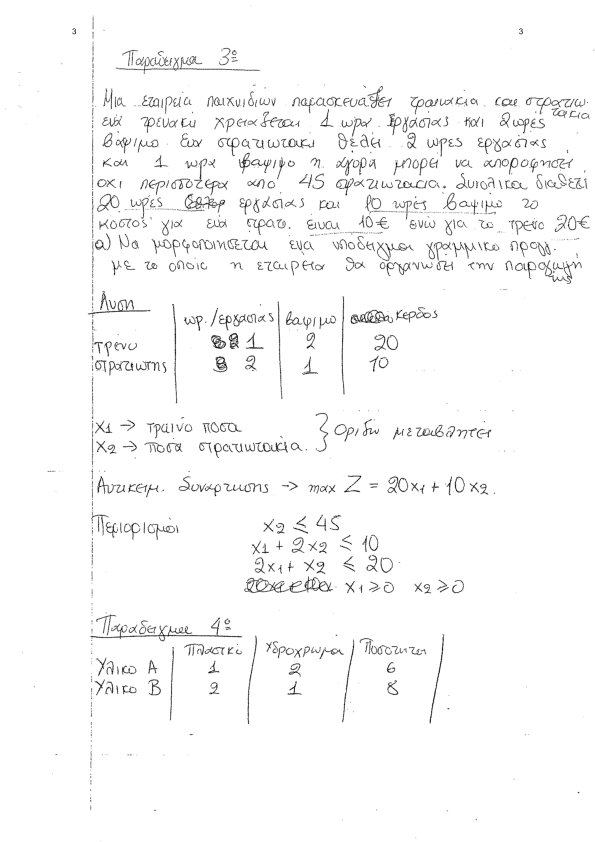 3 3
Παράδειγμα 3º
Μια εταιρεία παιχνιδιών παρασκευάζει τραινάκια και στρατιω-
τάκια
ένα τρενάκι χρειάζεται 1 ώρα εργασίας και 2 ώρες
βάψιμο. Ένα στρατιωτάκι θέλει 2 ώρες εργασίας
και 1 ώρα βάψιμο η αγορά μπορεί να απορροφήσει
όχι περισσότερα από 45 στρατιωτάκια. Συνολικά διαθέτει
20 ώρες εργασίας και 10 ώρες βάψιμο το
κόστος για ένα στρατ. είναι 10€ ενώ για το τρένο 20€
α) Να μορφοποιήσεται ένα υπόδειγμα γραμμικό προγρ.
με το οποίο η εταιρεία θα οργανώσει την παραγωγή
της
Λύση
ωρ./εργασίας βάψιμο κέρδος
τρένο 1 2 20
στρατιώτης 2 1 10
x1 → τραίνο πόσα
x2 → πόσα στρατιωτάκια. } Ορίζω μεταβλητές
Αντικειμ. Συνάρτησης → max Z = 20x1 + 10x2.
Περιορισμοί x2 ≤ 45
x1 + 2x2 ≤ 10
2x1 + x2 ≤ 20
x1 ≥ 0 x2 ≥ 0
Παράδειγμα 4º
Πλαστικό Υδρόχρωμα Ποσότητες
Υλικό Α 1 2 6
Υλικό Β 2 1 8